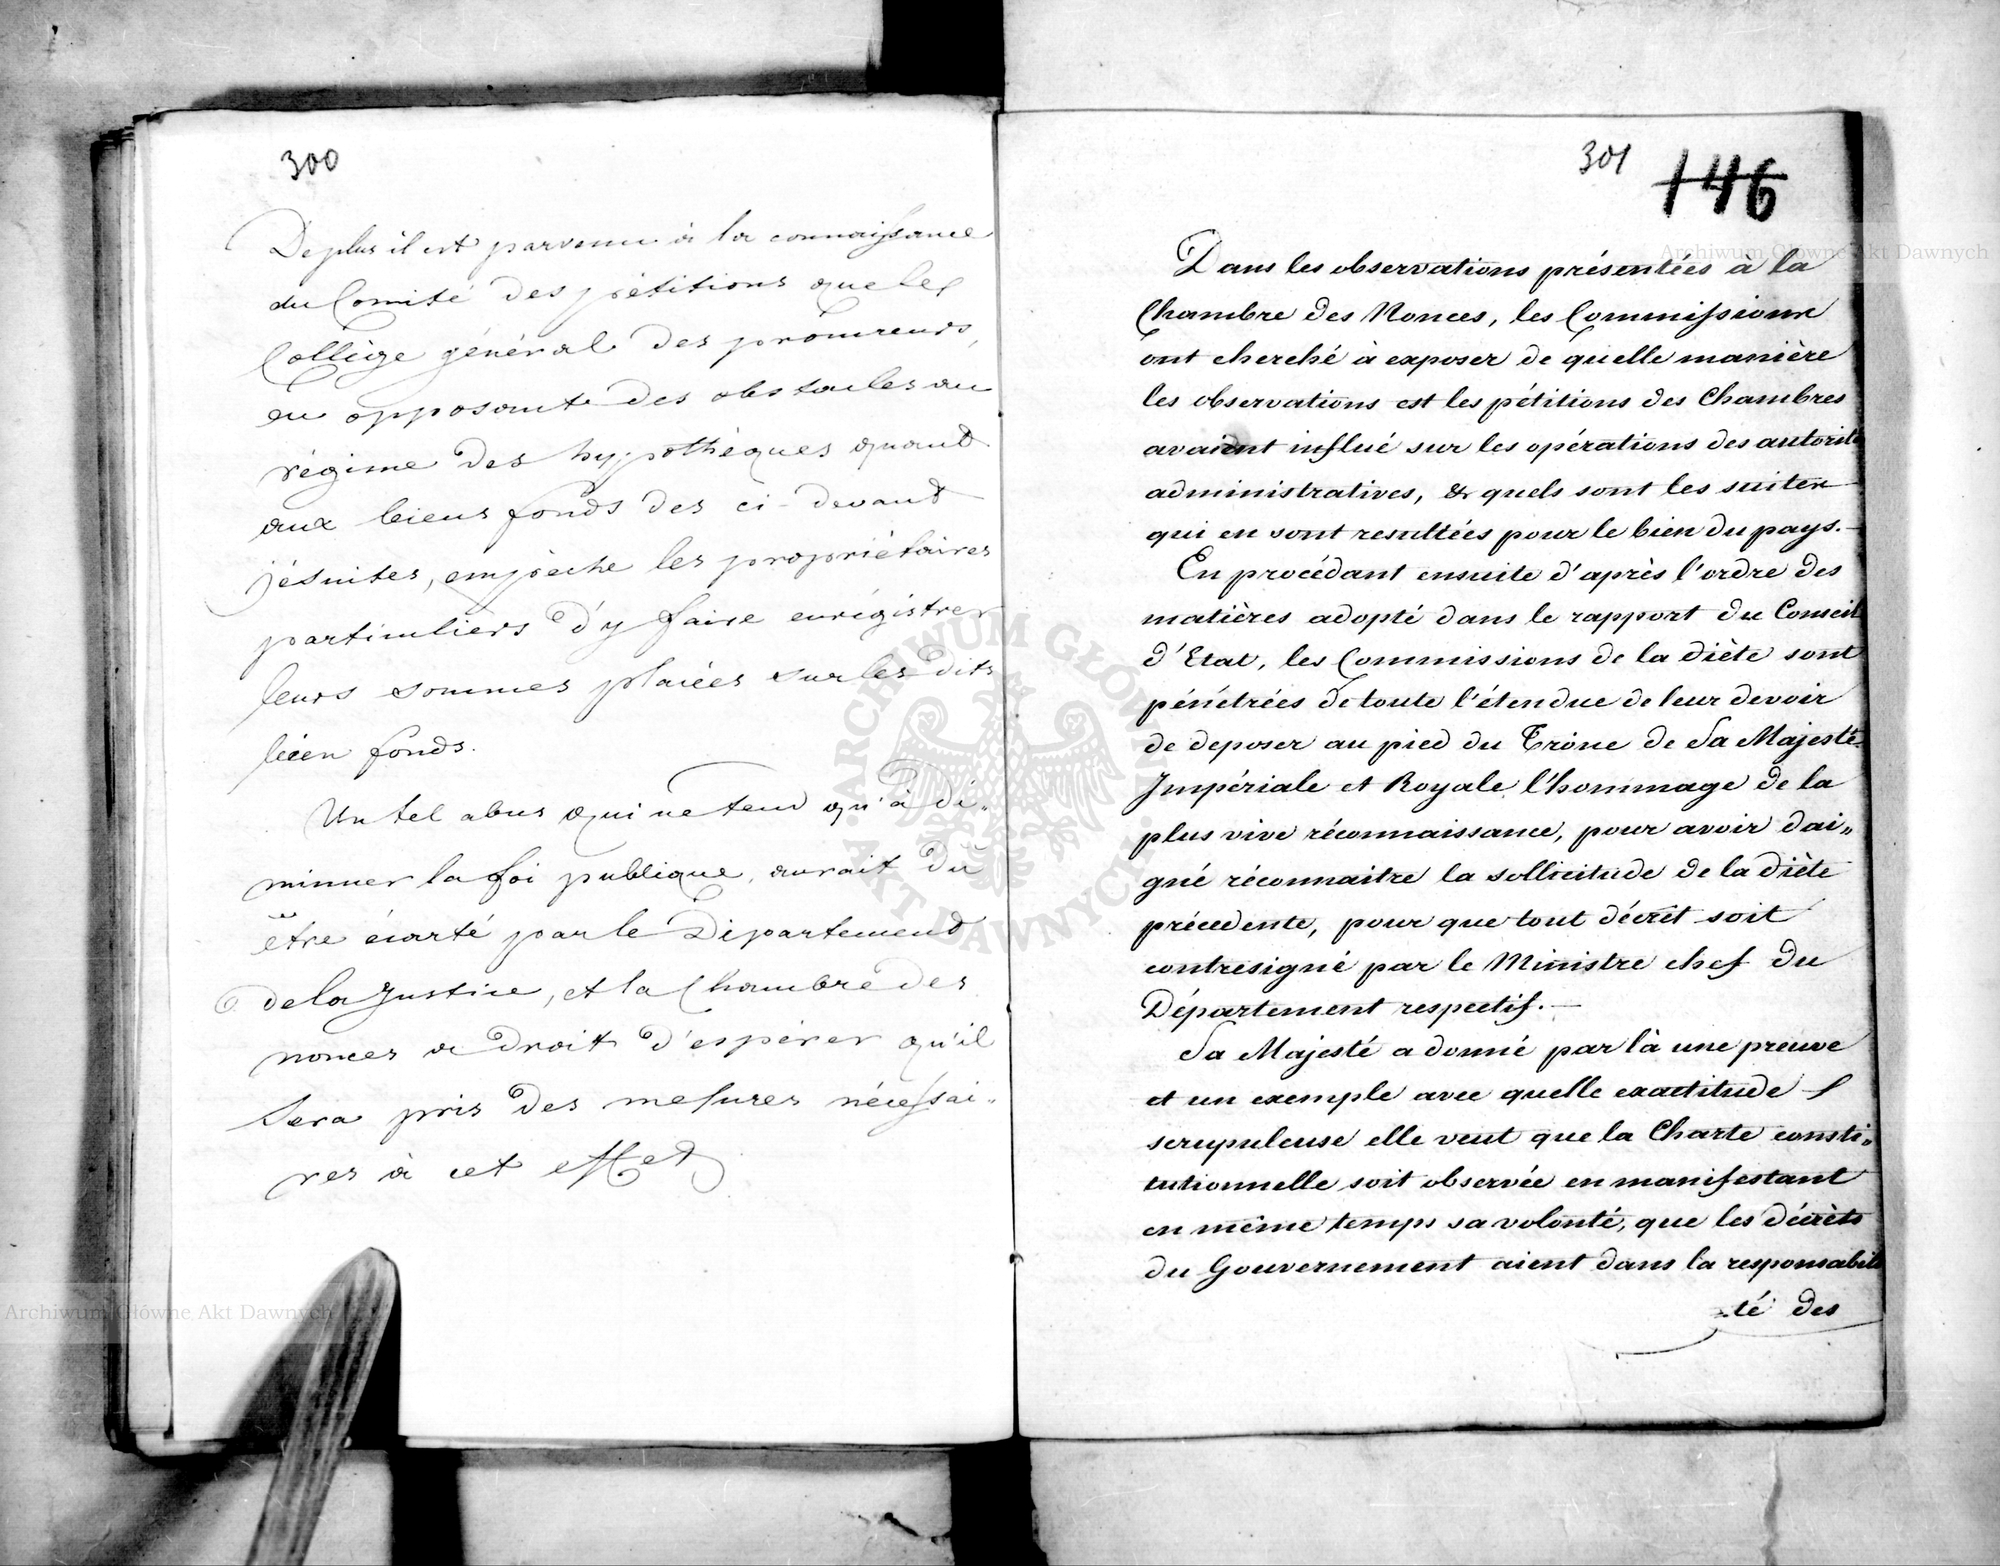 300
De plus il est parvenu à la connaissance
du Comité des pétitions que le
Collège général des procureurs,
en opposant des obstacles au
régime des hypothèques quand
aux biens fonds des ci-devant
jésuites, empêche les propriétaires
particuliers d'y faire enrégistrer
leurs sommes placées sur les dits
bien fonds.
Un tel abus qui ne tend qu'à di-
minuer la foi publique, aurait dû
être écarté par le Département
de la Justice, et la Chambre des
nonces a droit d'espérer qu'il
sera pris des mesures nécessai-
res à cet effet
301 146
Dans les observations présentées à la
Chambre des Nonces, les Commissions
ont cherché à exposer de quelle manière
les observations est les pétitions des Chambres
avaient influé sur les opérations des autorité
administratives, & quels sont les suites
qui en sont resultées pour le bien du pays.—
En procédant ensuite d'après l'ordre des
matières adopté dans le rapport du Conseil
d'Etat, les Commissions de la diète sont
pénétrées de toute l'étendue de leur devoir
de deposer au pied du Trône de Sa Majesté
Impériale et Royale l'hommage de la
plus vive réconnaissance, pour avoir dai„
gné réconnaitre la sollicitude de la diète
précedente, pour que tout décret soit
contresigné par le Ministre chef du
Département respectif.—
Sa Majesté a donné par là une preuve
et un exemple avec quelle exactitude
scrupuleuse elle veut que la Charte consti„
tutionnelle soit observée en manifestant
en même temps sa volonté, que les décrèts
du Gouvernement aient dans la responsabili
té des
Archiwum Główne Akt Dawnych
Archiwum Główne Akt Dawnych
ARCHIWUM GŁÓWNE AKT DAWNYCH